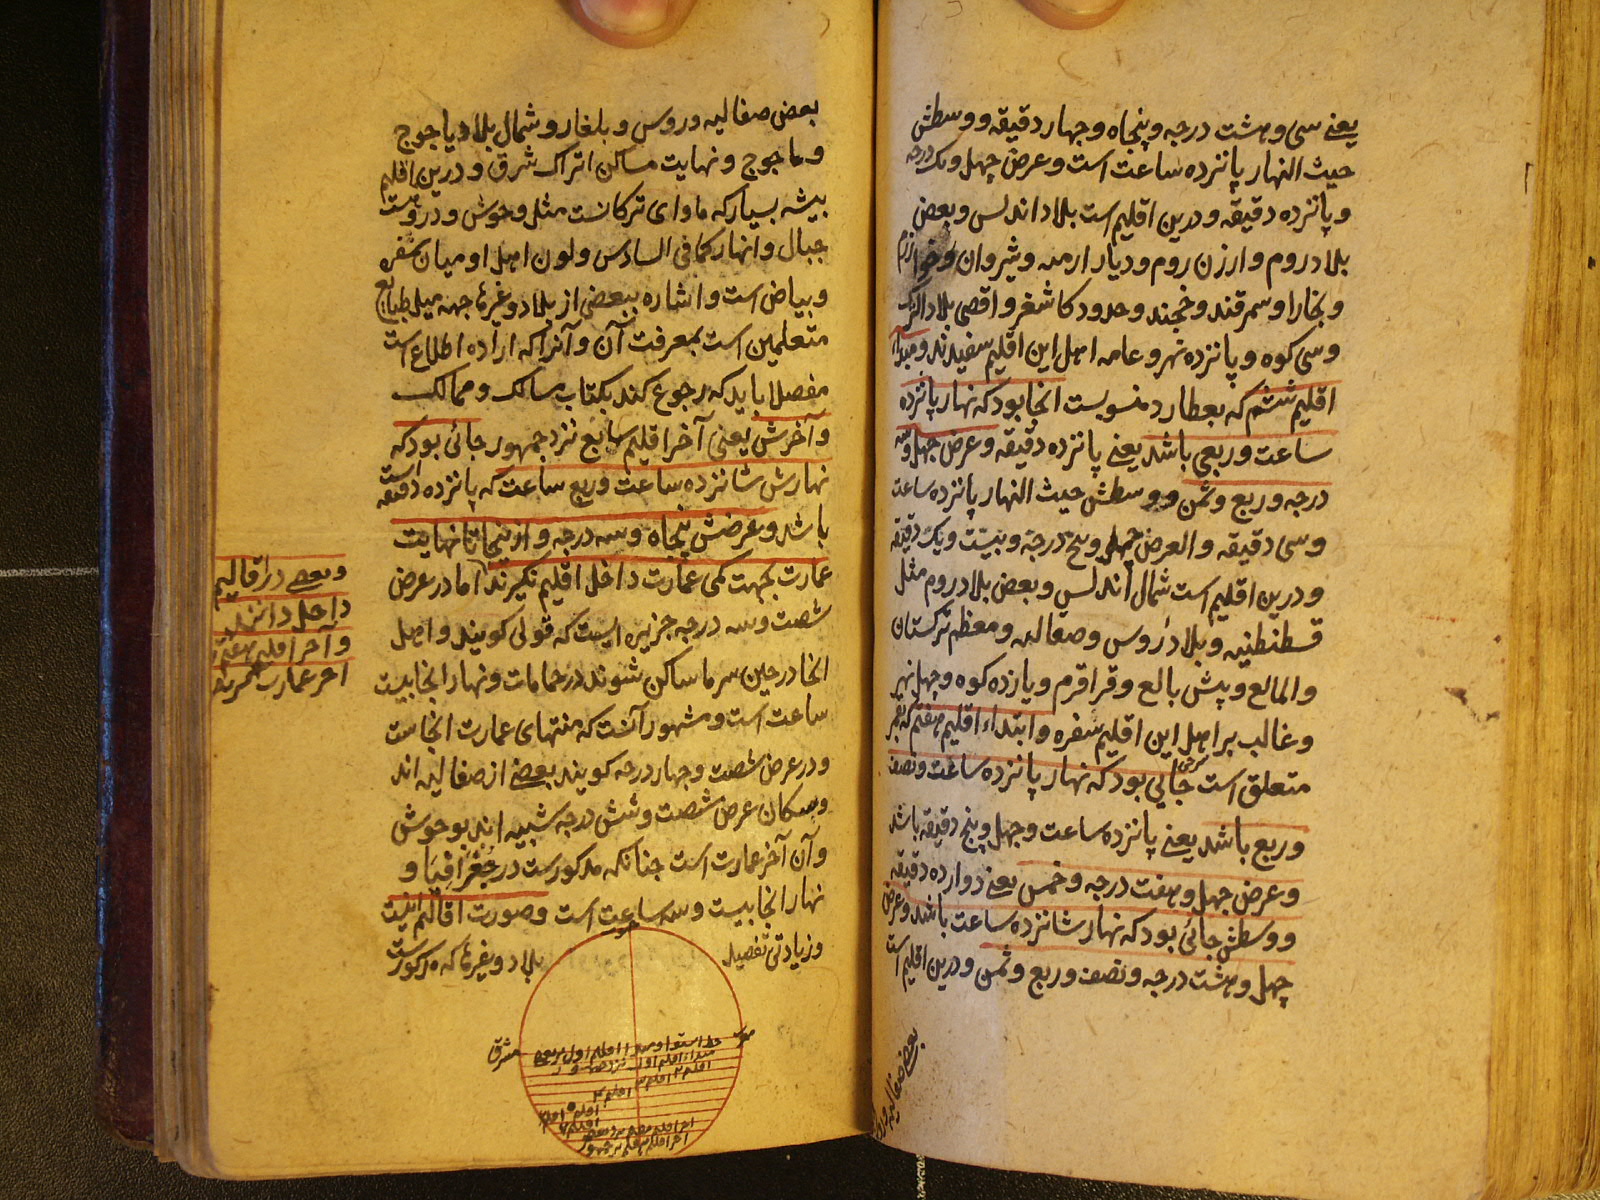 یعنے سی و هشت درجه و پنجاه و چهار دقیقه و وسطش
حیث النهار پانزده ساعت است و عرض چهل و یک درجه
و پانزده دقیقه و درین اقلیم است بلاد اندلس و بعض
بلاد روم و ارزن روم و دیار ارمنه و شیروان و خوارزم
و بخارا و سمرقند و خجند و حدود کاشغر و اقصی بلاد الترک
و سی کوه و پانزده نهر و عامه اهل این اقلیم سفیدند و مبداء
اقلیم ششم که بعطارد منسوبست انجا بود که نهار پانزده
ساعت و ربعی باشد یعنے پانزده دقیقه و عرض چهل و سه
درجه و ربع و ثمن و وسطش حیث النهار پانزده ساعت
و سی دقیقه و العرض چهل و پنج درجه و بیست و یک دقیقه
و درین اقلیم است شمال اندلس و بعض بلاد روم مثل
قسطنطنیه و بلاد روس و صقالبه و معظم ترکستان
و المالع و پیش بالع و قراقرم و یازده کوه و چهل نهر
و غالب بر اهل این اقلیم سفره و ابتداء اقلیم هفتم که بقمر
متعلق است جایی بود که نهار پانزده ساعت و نصف
و ربع باشد یعنے پانزده ساعت و چهل و پنج دقیقه باشد
و عرض چهل و هفت درجه و خمس یعنے دوازده دقیقه
و وسطش جائی بود که نهار شانزده ساعت باشد و عرض
چهل و هشت درجه و نصف و ربع و ثمن و درین اقلیم است
بعضے صقالیه و روس
بعض صقالیه و روس و بلغار و شمال بلاد یاجوج
و ماجوج و نهایت مساکن اتراک شرق و درین اقلیم
بیشه بسیار که ماوای ترکانست مثل وحوش و دروست
جبال و انهار کما فی السادس و لون اهل او میان شقره
و بیاض است و اشاره ببعضی از بلاد و غیرها جهه میل طبایع
متعلمین است بمعرفت آن و آنرا که اراده اطلاع است
مفصلا باید که رجوع کند بکتاب مسالک و ممالک
و آخرش یعنی آخر اقلیم سابع نزد جمهور جائی بود که
نهارش شانزده ساعت و ربع ساعت که پانزده دقیقه است
باشد و عرضش پنجاه و سه درجه و ازینجا تا نهایت
عمارت بجهت کمی عمارت داخل اقلیم نگیرند اما در عرض
شصت و سه درجه جزیره ایست که قولی گویند و اهل
انجا در حین سرما ساکن شوند در حمامات و نهار انجا بیست
ساعت است و مشهور آنست که منتهای عمارت انجاست
و در عرض شصت و چهار درجه گویند بعضے از صقالیه اند
و سکان عرض شصت و شش درجه شبیه اند بوحوش
و آن آخر عمارت است چنانکه مذکورست در جغرافیا و
نهار انجا بیست و سه ساعت است و صورت اقالیم اینست
و زیادتی تفصیل بلاد و غیرها که مذکورست
و بعضے در اقالیم
داخل دانند
و آخر اقلیم هفتم
آخر عمارت
مغرب
مشرق
خط استوا و مبدا اقلیم اول نزد بعضے
مبداء اقلیم اول نزد جمهور
اقلیم ۲ اقلیم ۳
اقلیم ۴
اقلیم ۵
اقلیم ۶
اقلیم ۷
آخر اقلیم هفتم نزد بعضے
آخر اقلیم هفتم نزد جمهور